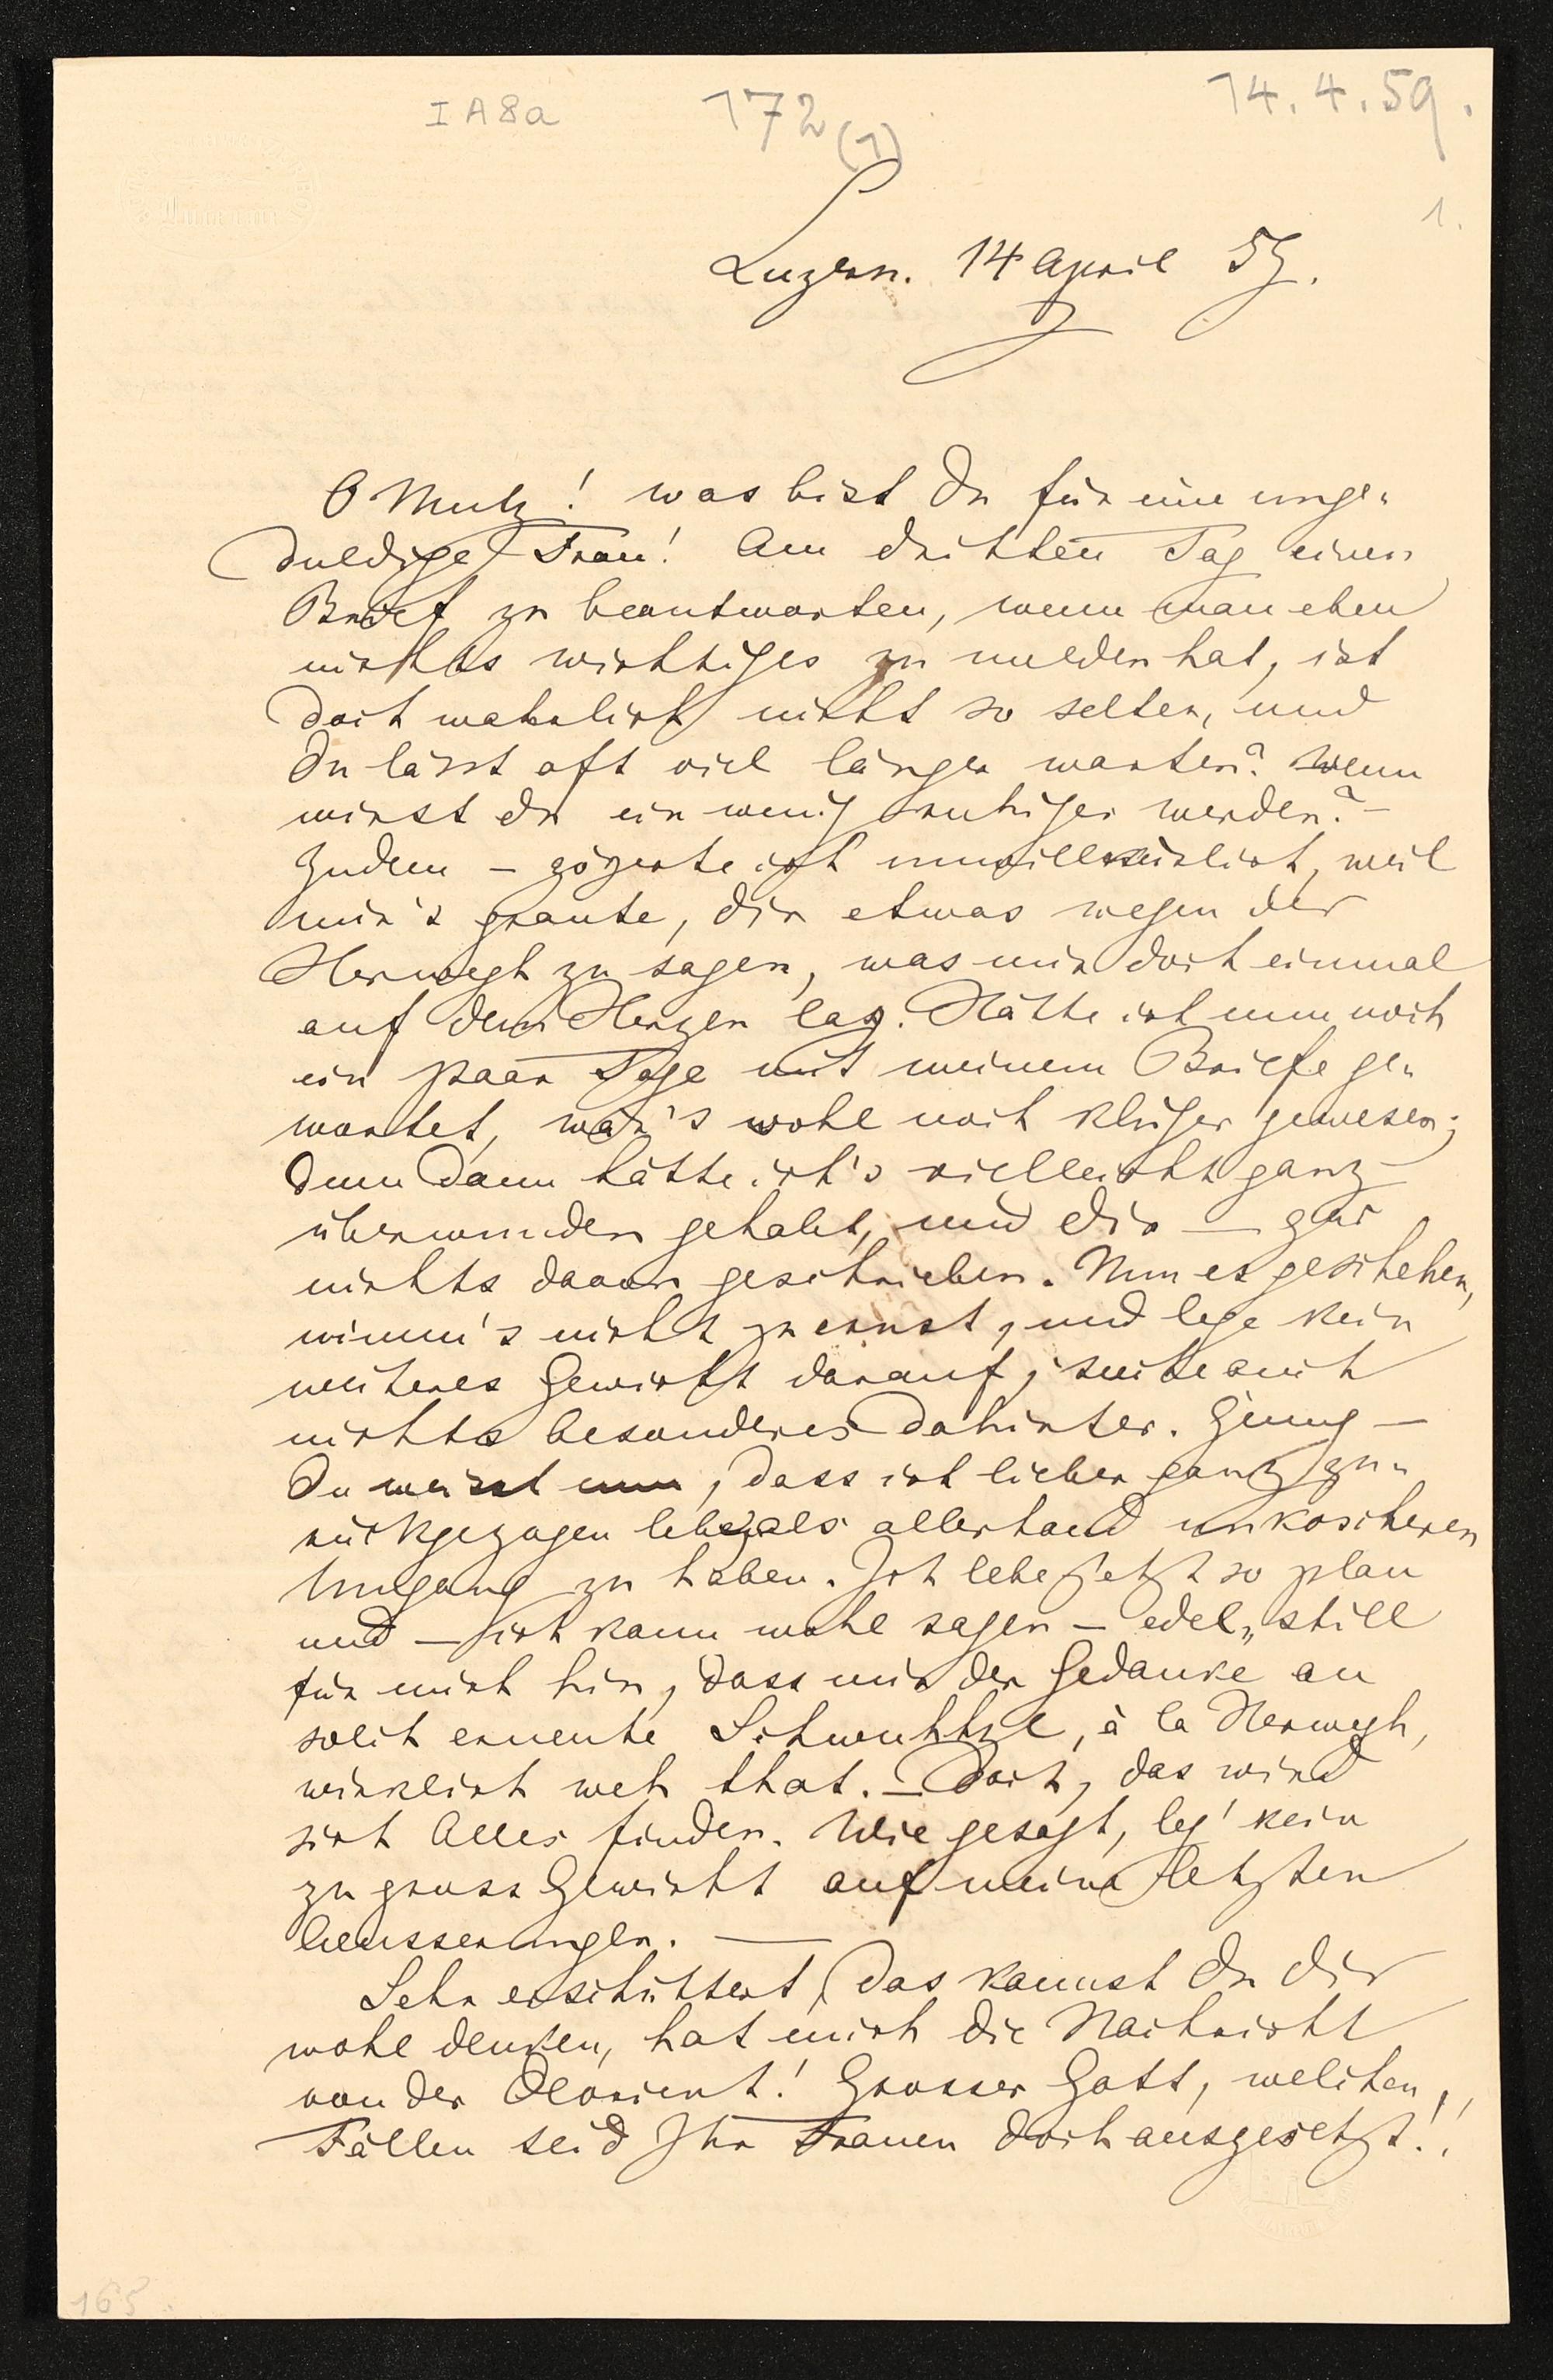 I A 8a
172 (1)
14.4.59.
1.
Luzern. 14 April 59.
O Mutz! was bist du für eine unge-
duldige Frau! Am dritten Tag einen
Brief zu beantworten, wenn man eben
nichts wichtiges zu melden hat, ist
doch wahrlich nicht so selten, und
du lässt oft viel länger warten? Wenn
wirst du ein wenig ruhiger werden? –
Zudem – zögerte ich unwillkürlich, weil
mir's graute, dir etwas wegen der
Herwegh zu sagen, was mir doch einmal
auf dem Herzen lag. Hätte ich nun noch
ein paar Tage mit meinem Briefe ge-
wartet, wär's wohl noch klüger gewesen;
denn dann hätte ich's vielleicht ganz
überwunden gehabt, und dir – gar
nichts davon geschrieben. Nun es geschehen,
nimm's nicht zu ernst, und lege kein
weiteres Gewicht darauf; suche auch
nichts besonderes dahinter. Genug –
Du weisst nun, dass ich lieber ganz zu-
rückgezogen lebe, als allerhand unkoscheren
Umgang zu haben. Ich lebe jetzt so plan
und – ich kann wohl sagen – edel-still
für mich hin, dass mir der Gedanke an
solch erneute Schwuttzl, à la Herwegh,
wirklich weh that. – Doch, das wird
sich Alles finden. Wie gesagt, leg' kein
zu gross Gewicht auf meine letzten
Aeusserungen. —
Sehr erschüttert, das kannst du dir
wohl denken, hat mich die Nachricht
von der Olorient! Grosser Gott, welchen
Fällen seid Ihr Frauen doch ausgesetzt!!
165.